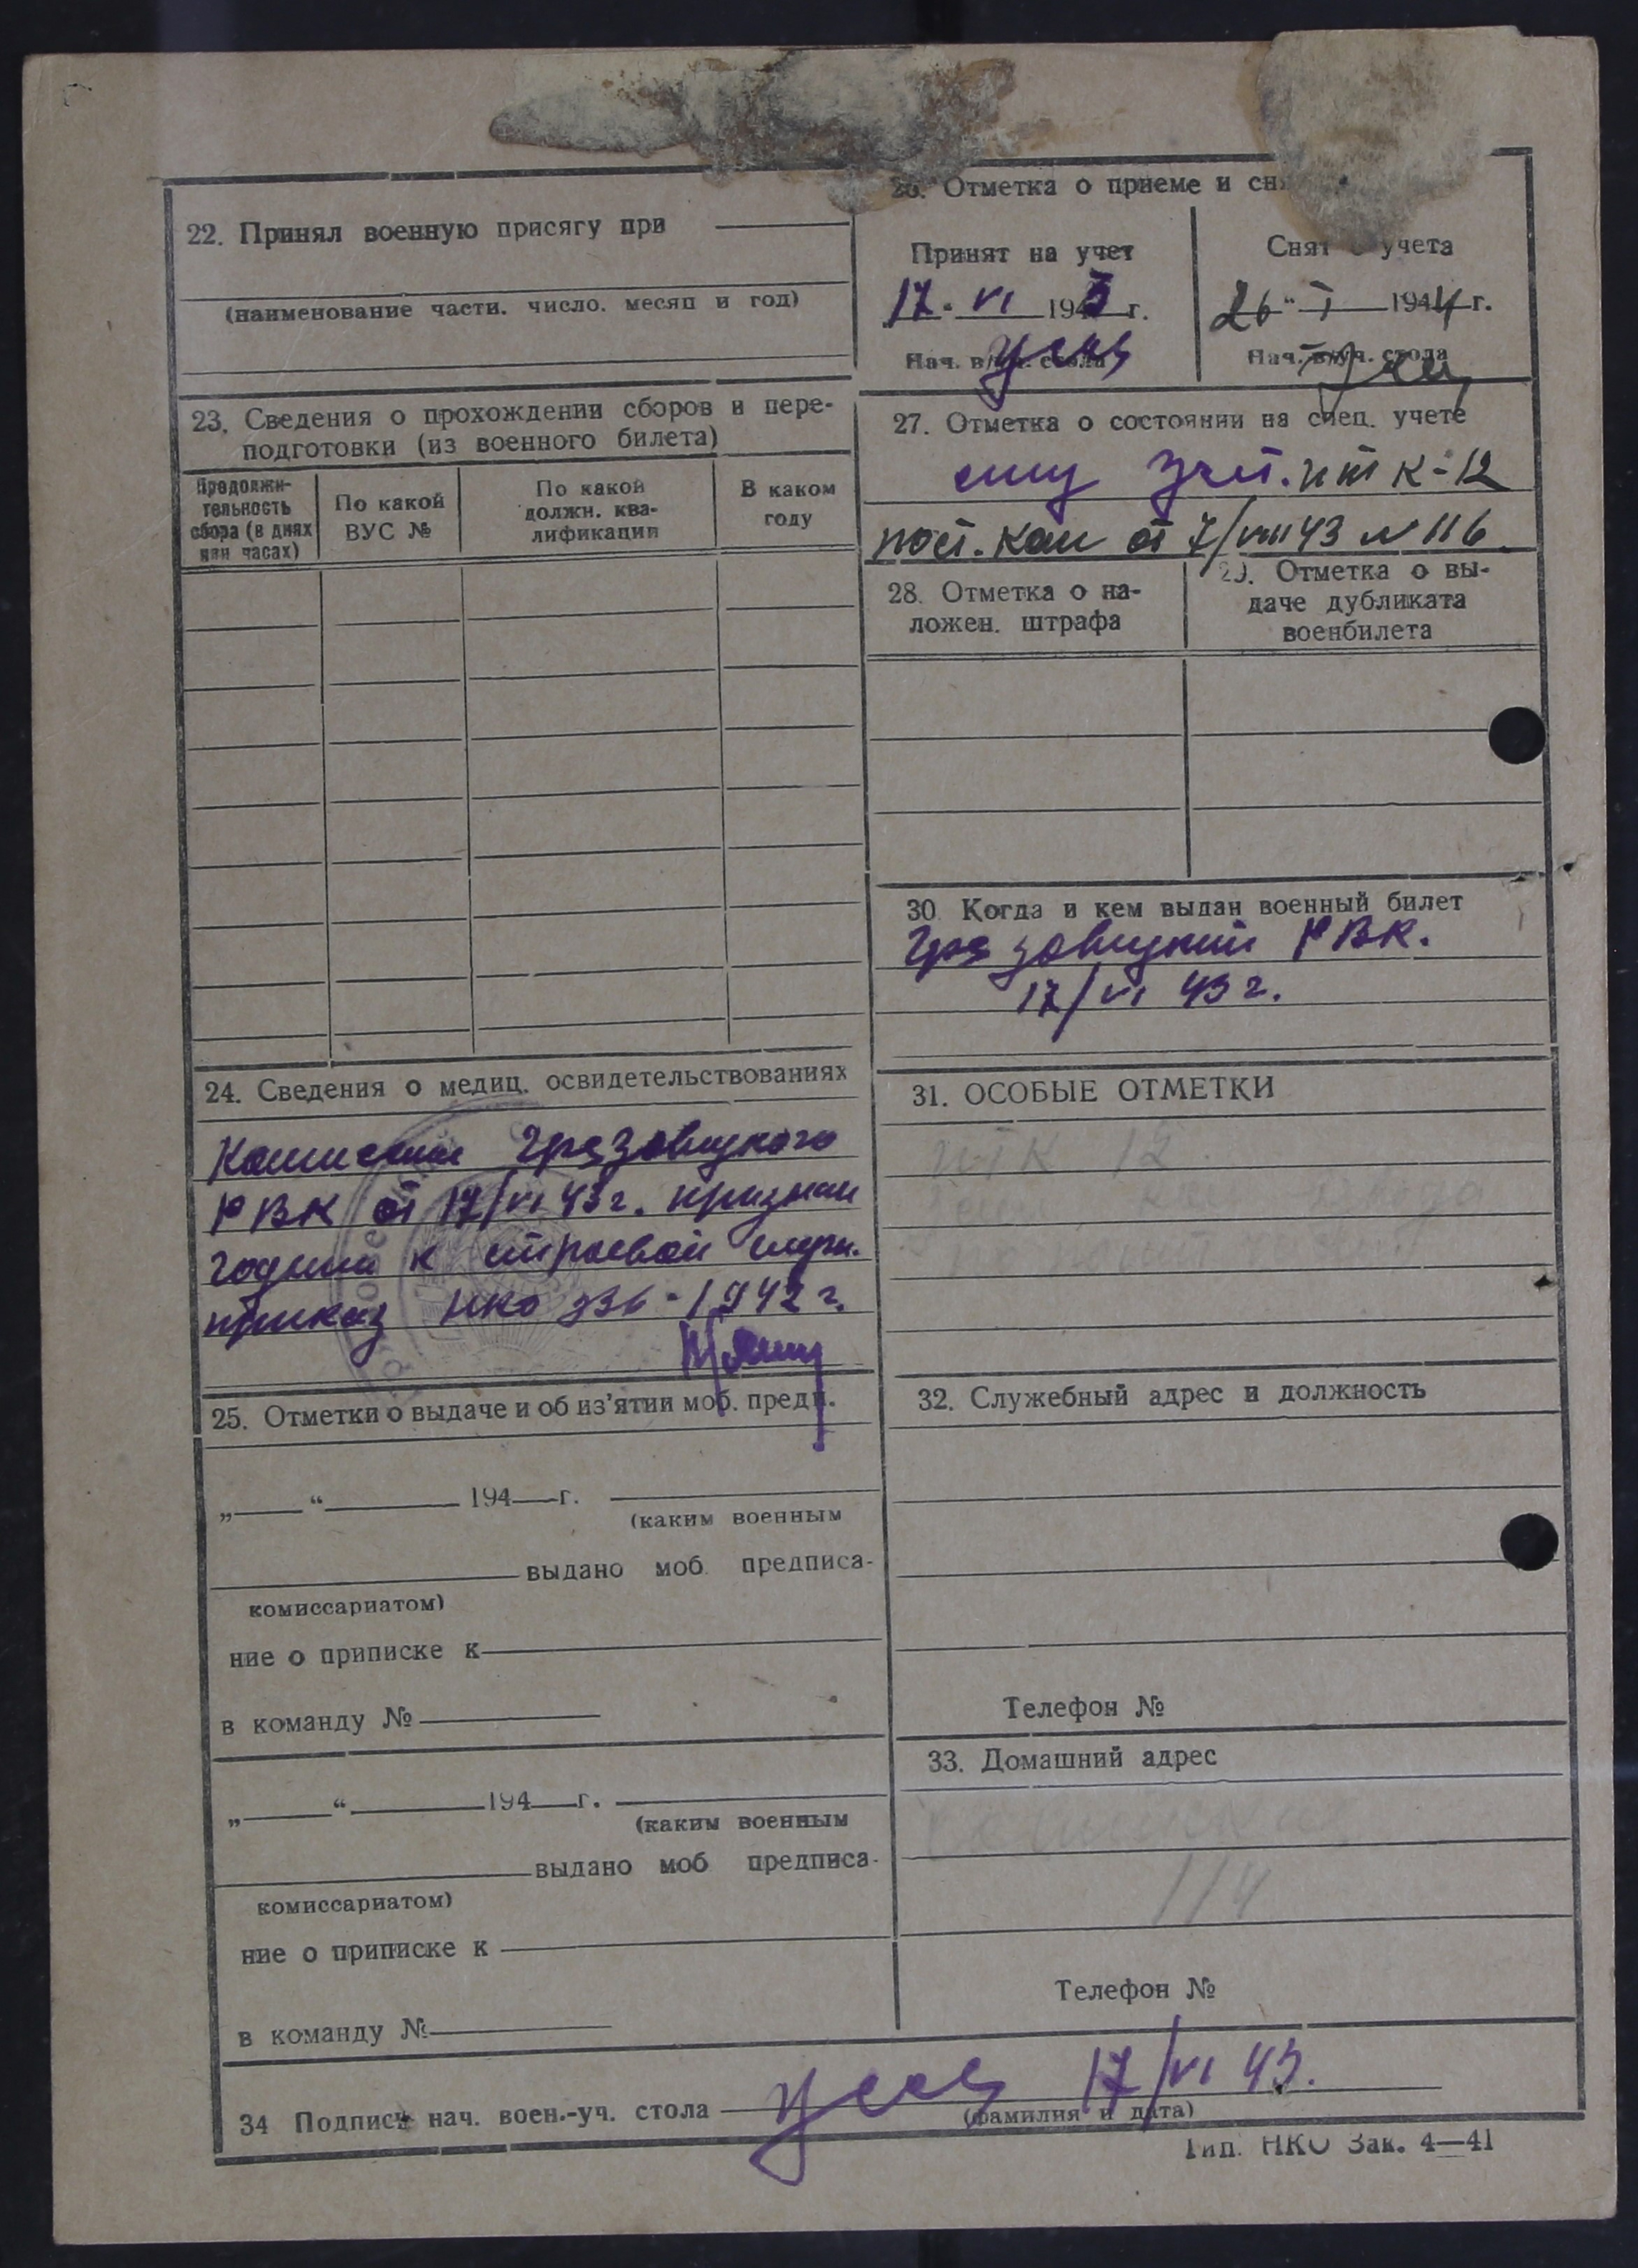 22. Принял военную присягу при
(наименование части. число. месяц и год)
23. Сведения о прохождении сборов и пере-
подготовки (из военного билета)
Продолжи-
тельность
сбора (в днях
или часах)
По какой
ВУС №
По какой
должн. ква-
лификации
В каком
году
24. Сведения о медиц. освидетельствованиях
Комиссией Грязовецкого
РВК от 17/VI 43г. признан
годным к строевой
приказ НКО 336-1942г.
25. Отметки о выдаче и об из'ятии моб. предп.
„ “ 194 г.
(каким военным
выдано моб. предписа-
комиссариатом)
ние о приписке к
в команду №
„ “ 194 г.
(каким военным
выдано моб предписа-
комиссариатом)
ние о приписке к
в команду №
26. Отметка о приеме и
Принят на учет
17. VI 1943 г.
Нач. в/уч. стола
Снят с учета
26 “ I 1944 г.
Нач. в/уч. стола
27. Отметка о состоянии на спец. учете
К-12
от 7/VIII 43 № 116
28. Отметка о на-
ложен. штрафа
29. Отметка о вы-
даче дубликата
военбилета
30. Когда и кем выдан военный билет
Грязовецким РВК.
17/VI 43 г.
31. ОСОБЫЕ ОТМЕТКИ
ИТК 12
32. Служебный адрес и должность
Телефон №
33. Домашний адрес
114
Телефон №
34 Подпись нач. воен.-уч. стола 17/VI 43.
(фамилия и дата)
Тип. НКО Зак. 4—41